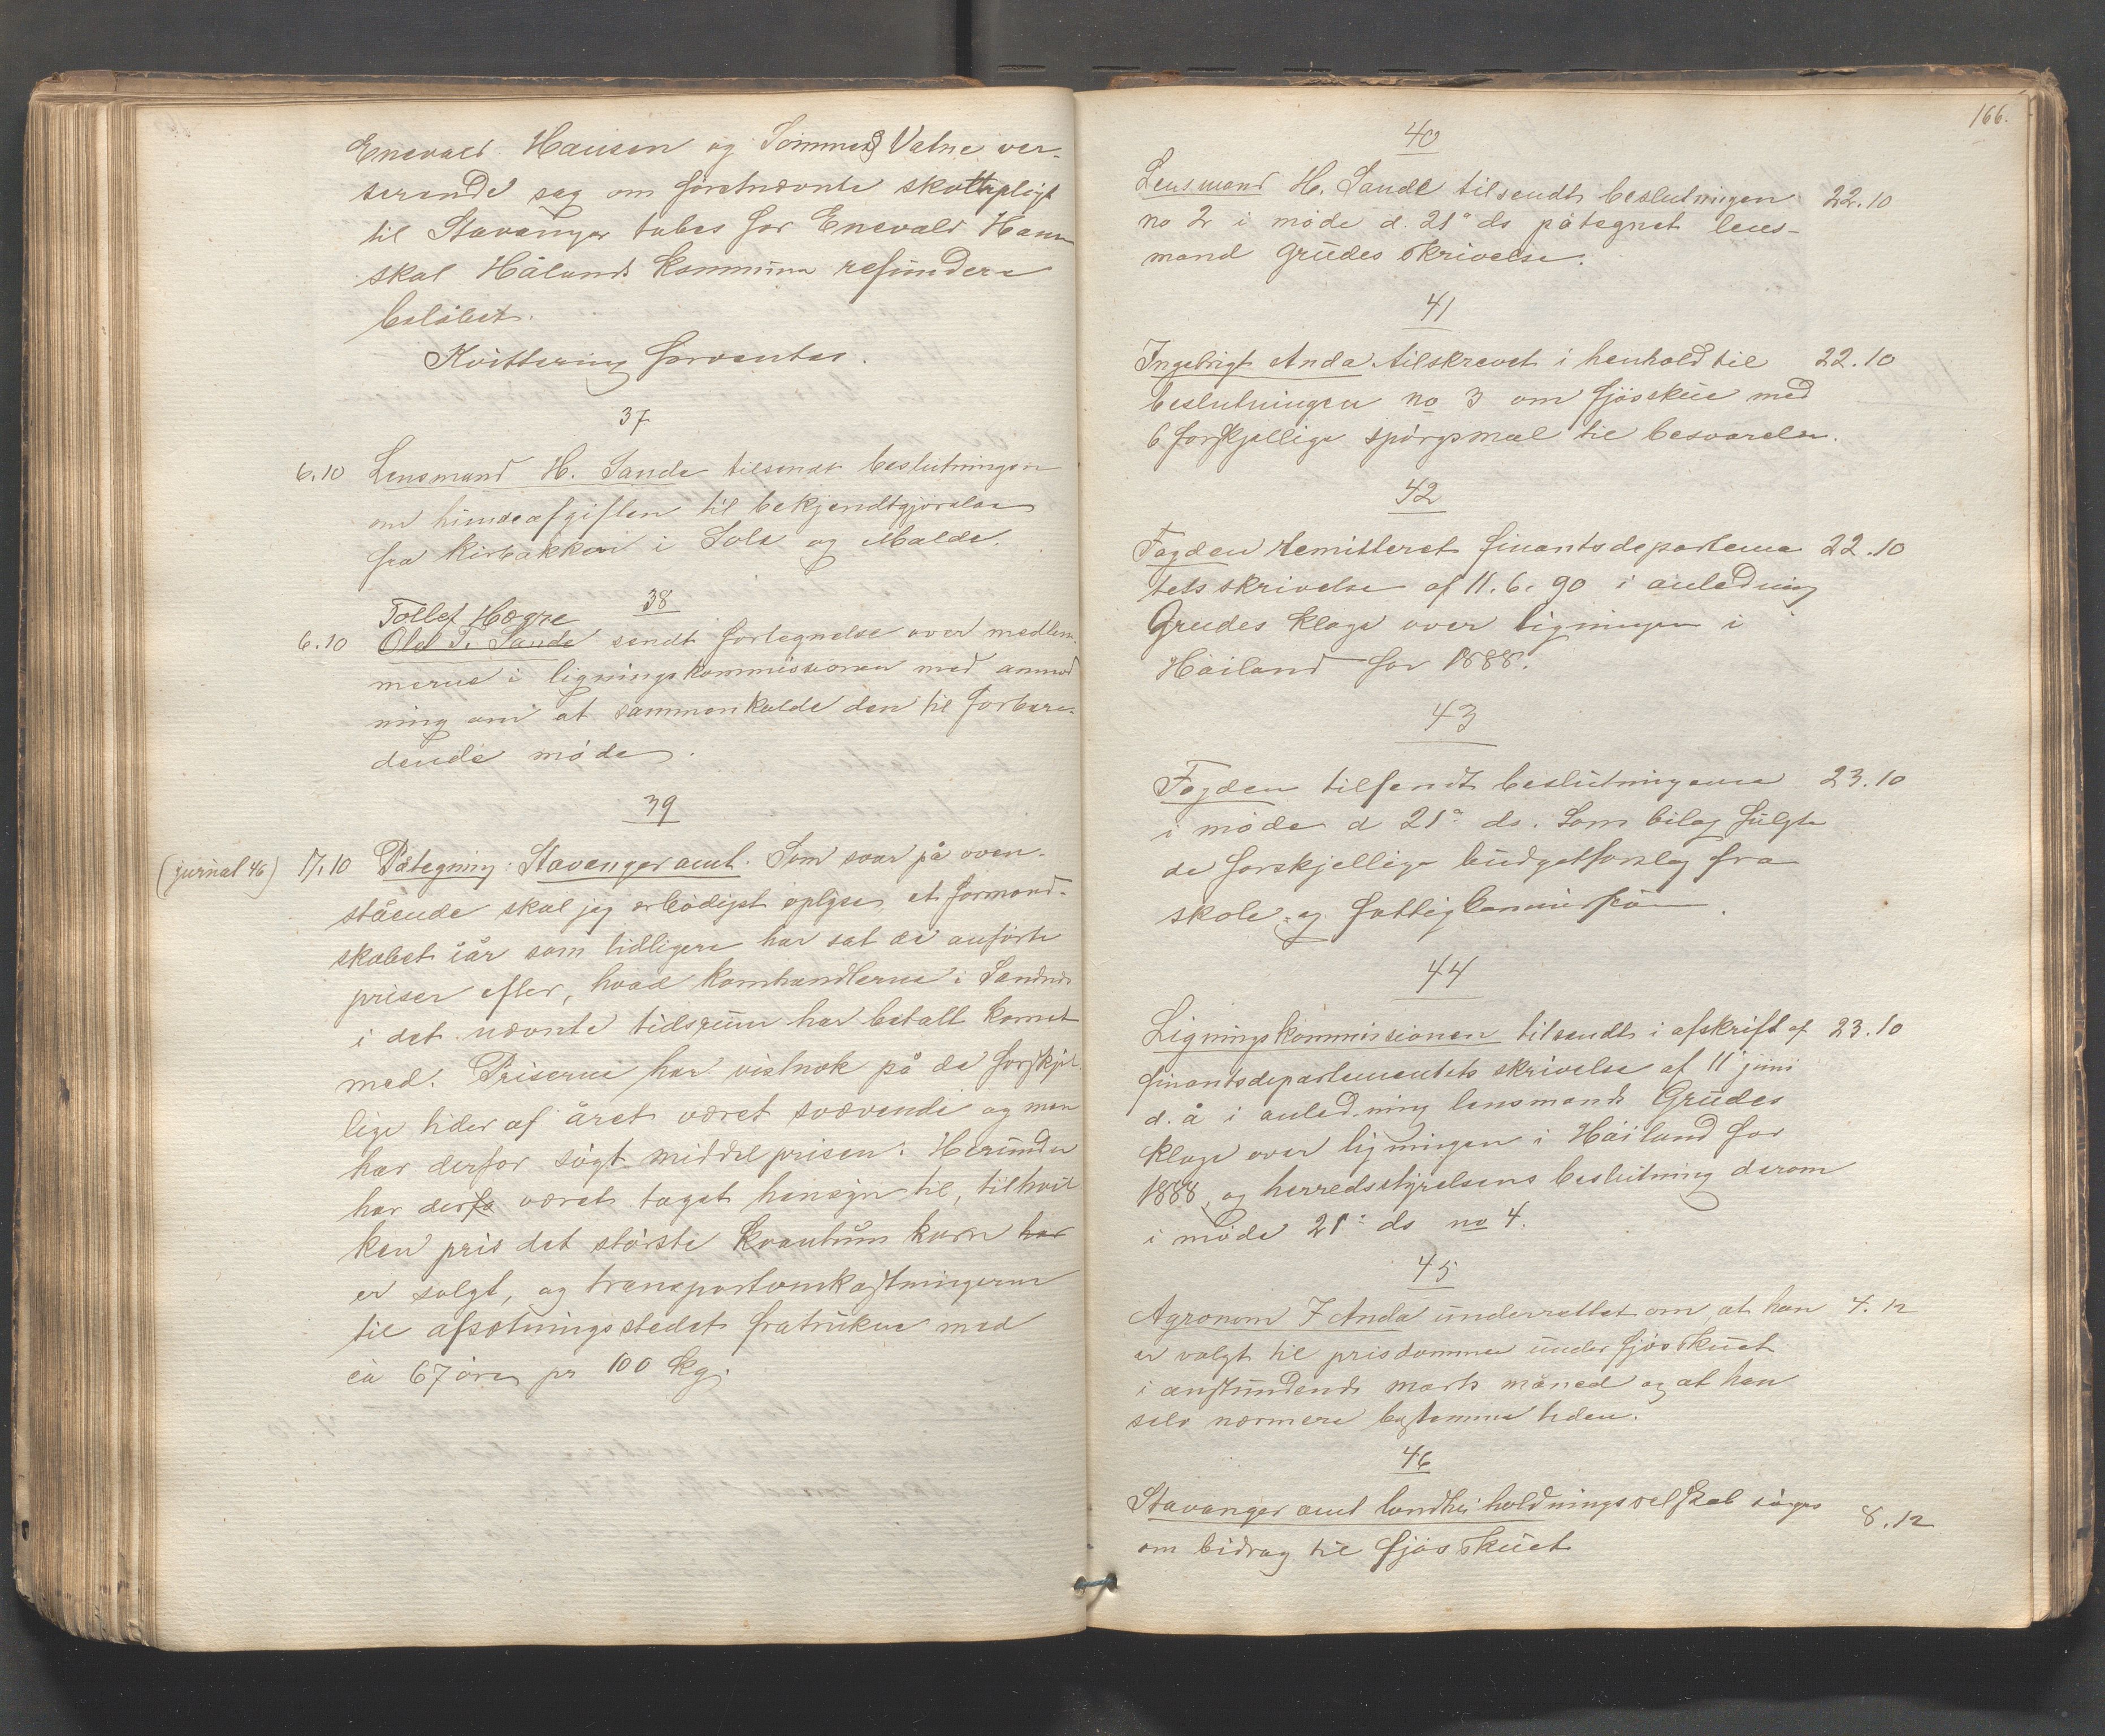 Enevald Hansen og Sømme & Vatne ver-
serende sag om førstnævnte skattepligt
til Stavanger tabes for Enevald Hansen
skal Hålands kommune refundere
beløbet.
Kvittering forventes.
37
6.10 Lensmand H. Sande tilsendt beslutningen
om hundeafgiften til bekjendtgjørelse
fra kirbakken i Sole og Malde.
38
Tollef Hogre
6.10 Olal T. Sande sendt fortegnelse over medlem-
merne i ligningskommissionen med anmod
ning om at sammenkalde den til forbere-
dende møde.
39
(jurnal 46) 17.10 Påtegning: Stavanger amt. Som svar på oven-
stående skal jeg erbødigst oplyse, at formand-
skabet iår som tidligere har sat de anførte
priser efter, hvad kornhandlerne i Sandnes
i det nævnte tidsrum har betalt kornet
med. Priserne har vistnok på de forskjel
lige tider af året været svævende og man
har derfor søgt middelprisen. Herunder
har derfo været taget hensyn til, til hvil
ken pris det største kvantum korn har
er solgt, og transportomkostningerne
til afsætningsstedet fratrukne med
ca 67 øre pr 100 kg.
166.
40
Lensmand H. Sande tilsendt beslutningen 22.10
no 2 i møde d. 21de ds påtegnet lens-
mand Grudes skrivelse.
41
Ingebrigt Anda tilskrevet i henhold til 22.10
beslutningen no 3 om fjøsskue med
6 forskjellige spørgsmål til besvarelse.
42
Fogden remitteret finantsdepartemen 22.10
tets skrivelse af 11.6.90 i anledning
Grudes klage over ligningen i
Håiland for 1888.
43
Fogden tilsendt beslutningerne 23.10
i møde d 21de ds. Som bilag fulgte
de forskjellige budgetforslag fra
skole- og fattigkommission.
44
Ligningskommissionen tilsendt i afskrift af 23.10
finantsdepartementets skrivelse af 11 juni
d. å i anledning lensmand Grudes
klage over ligningen i Håiland for
1888, og herredsstyrelsens beslutning derom
i møde 21de ds no 4.
45
Agronom I Anda underrettet om, at han 4.12
er valgt til prisdommer under fjøsskuet
i anstundende marts måned og at han
selv nærmere bestemmer tiden.
46
Stavanger amt landhusholdningsselskab søges 8.12
om bidrag til fjøsskuet